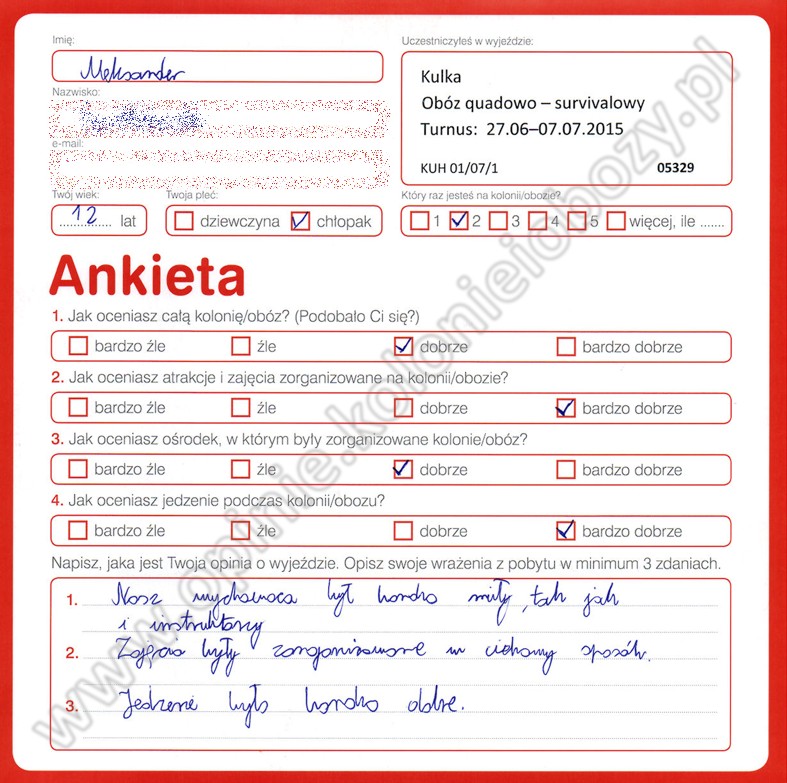 Imię:
Aleksander
Uczestniczyłeś w wyjeździe:
Kulka
Obóz quadowo – survivalowy
Turnus: 27.06–07.07.2015
KUH 01/07/1 05329
Nazwisko:
e-mail:
Twój wiek:
12 lat
Twoja płeć:
dziewczyna chłopak
Który raz jesteś na kolonii/obozie?
1 2 3 4 5 więcej, ile .......
Ankieta
1. Jak oceniasz całą kolonię/obóz? (Podobało Ci się?)
bardzo źle źle dobrze bardzo dobrze
2. Jak oceniasz atrakcje i zajęcia zorganizowane na kolonii/obozie?
bardzo źle źle dobrze bardzo dobrze
3. Jak oceniasz ośrodek, w którym były zorganizowane kolonie/obóz?
bardzo źle źle dobrze bardzo dobrze
4. Jak oceniasz jedzenie podczas kolonii/obozu?
bardzo źle źle dobrze bardzo dobrze
Napisz, jaka jest Twoja opinia o wyjeździe. Opisz swoje wrażenia z pobytu w minimum 3 zdaniach.
1. Nasz wychowawca był bardzo miły, tak jak
i instruktorzy
2. Zajęcia były zorganizowane w ciekawy sposób.
3. Jedzenie było bardzo dobre.
www.opinie.kolonieiobozy.pl